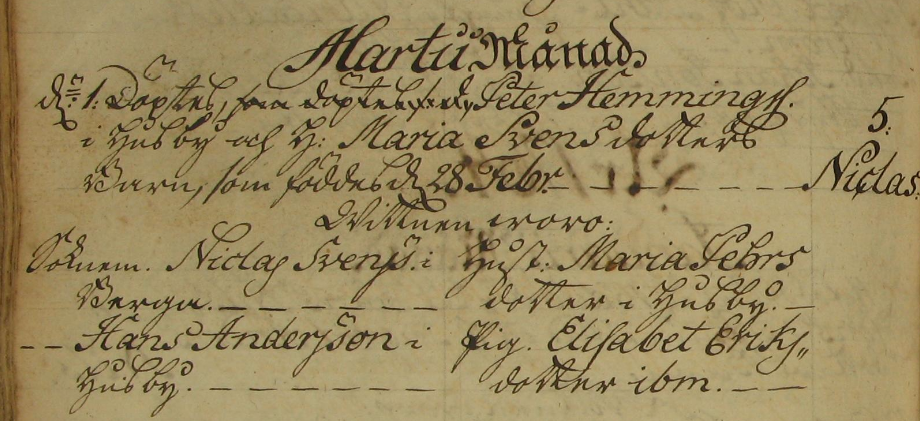 Martii Månad.
d. 1. Döptes, Peter Hemmingss.
5.
i Husby och H: Maria Svens dotters
Barn, som föddes d. 28 Febr. – – – – – – Niclas.
Wittnen woro:
Soknem. Niclas Svenss. i Hust: Maria Pehrs
Berga. – – – – – – dotter i Husby. –
– – Hans Andersson i Pig. Elisabet Eriks„
Husby. – – – – – – dotter ibm. – – –